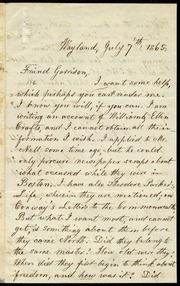 Wayland, July 7th 1865.
Friend Garrison,
I want some help,
which perhaps you can render me.
I know you will, if you can. I am
writing an account of William & Ellen
Crafts, and I cannot obtain all the in-
formation I wish. I applied to Mr.
Nell some time ago, but he could
only procure newspaper scraps about
what occurred while they were in
Boston. I have also Theodore Parker's
Life, wherein they are mentioned, and
Conway's Letter to the Commonwealth.
But what I want most, and cannot
get, is something about them before
they came North. Did they belong to
the same master? How old were they?
When did they first begin to
freedom, and how was it? Did